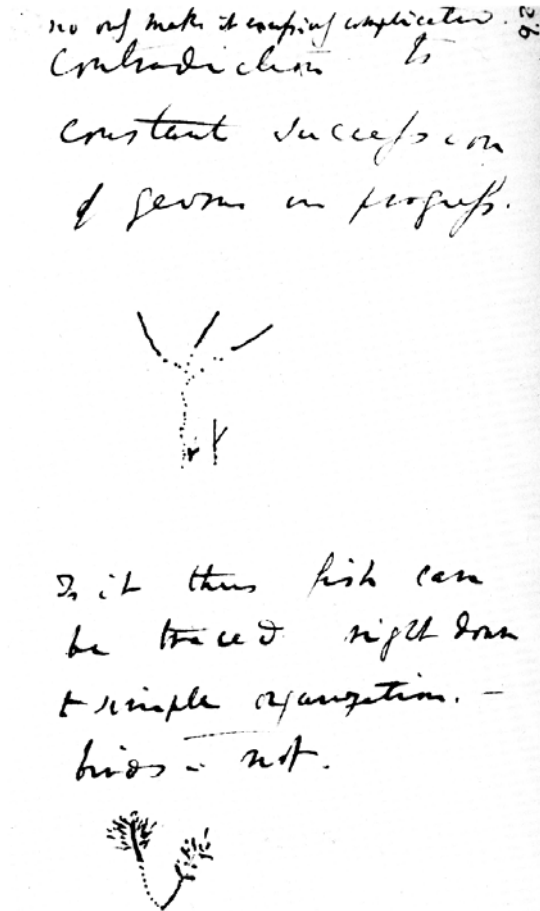 no only makes it excessively complicated.
26
Contradiction to
constant succession
of germs in progress.
Is it thus fish can
be traced right down
to simple organization. –
birds – not.